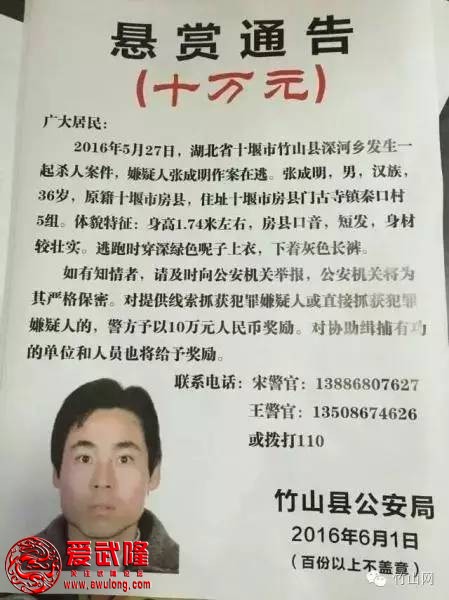 悬赏通告
(十万元)
广大居民：
2016年5月27日，湖北省十堰市竹山县深河乡发生一
起杀人案件，嫌疑人张成明作案在逃。张成明，男，汉族，
36岁，原籍十堰市房县，住址十堰市房县门古寺镇秦口村
5组。体貌特征：身高1.74米左右，房县口音，短发，身材
较壮实。逃跑时穿深绿色呢子上衣，下着灰色长裤。
如有知情者，请及时向公安机关举报，公安机关将为
其严格保密。对提供线索抓获犯罪嫌疑人或直接抓获犯罪
嫌疑人的，警方予以10万元人民币奖励。对协助缉捕有功
的单位和人员也将给予奖励。
联系电话：宋警官：13886807627
王警官：13508674626
或拨打110
竹山县公安局
2016年6月1日
(百份以上不盖章)
爱武隆
www.ewulong.com
竹山网